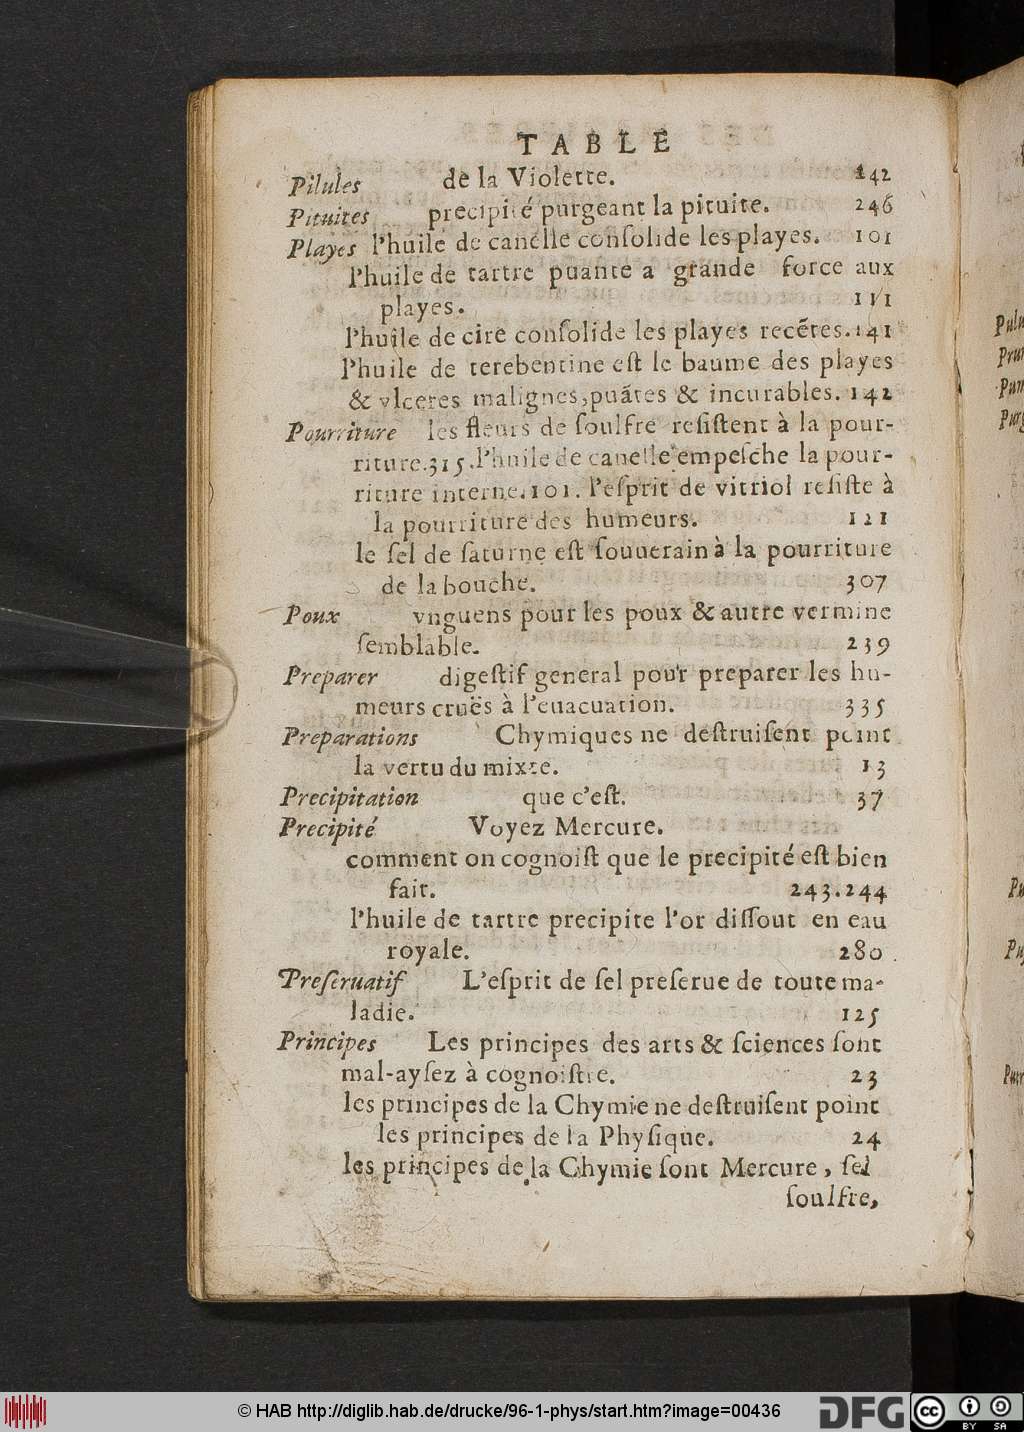 TABLE
Pilules de la Violette. 242
Pituites precipité purgeant la pituite. 246
Playes l'huile de canelle conſolide les playes. 101
l'huile de tartre puante a grande force aux
playes. 111
l'huile de cire conſolide les playes recẽtes. 141
l'huile de terebentine eſt le baume des playes
& vlceres malignes, puãtes & incurables. 142
Pourriture les fleurs de ſoulfre reſiſtent à la pour-
riture. 315. l'huile de canelle empeſche la pour-
riture interne. 101. l'eſprit de vitriol reſiſte à
la pourriture des humeurs. 121
le ſel de ſaturne eſt ſouuerain à la pourriture
de la bouche. 307
Poux vnguens pour les poux & autre vermine
ſemblable. 239
Preparer digeſtif general pour preparer les hu-
meurs cruës à l'euacuation. 335
Preparations Chymiques ne deſtruiſent point
la vertu du mixte. 13
Precipitation que c'eſt. 37
Precipité Voyez Mercure.
comment on cognoiſt que le precipité eſt bien
fait. 243.244
l'huile de tartre precipite l'or diſſout en eau
royale. 280
Preſeruatif L'eſprit de ſel preſerue de toute ma-
ladie. 125
Principes Les principes des arts & ſciences ſont
mal-ayſez à cognoiſtre. 23
les principes de la Chymie ne deſtruiſent point
les principes de la Phyſique. 24
les principes de la Chymie ſont Mercure, ſel
ſoulfre,
© HAB http://diglib.hab.de/drucke/96-1-phys/start.htm?image=00436
DFG
cc BY SA